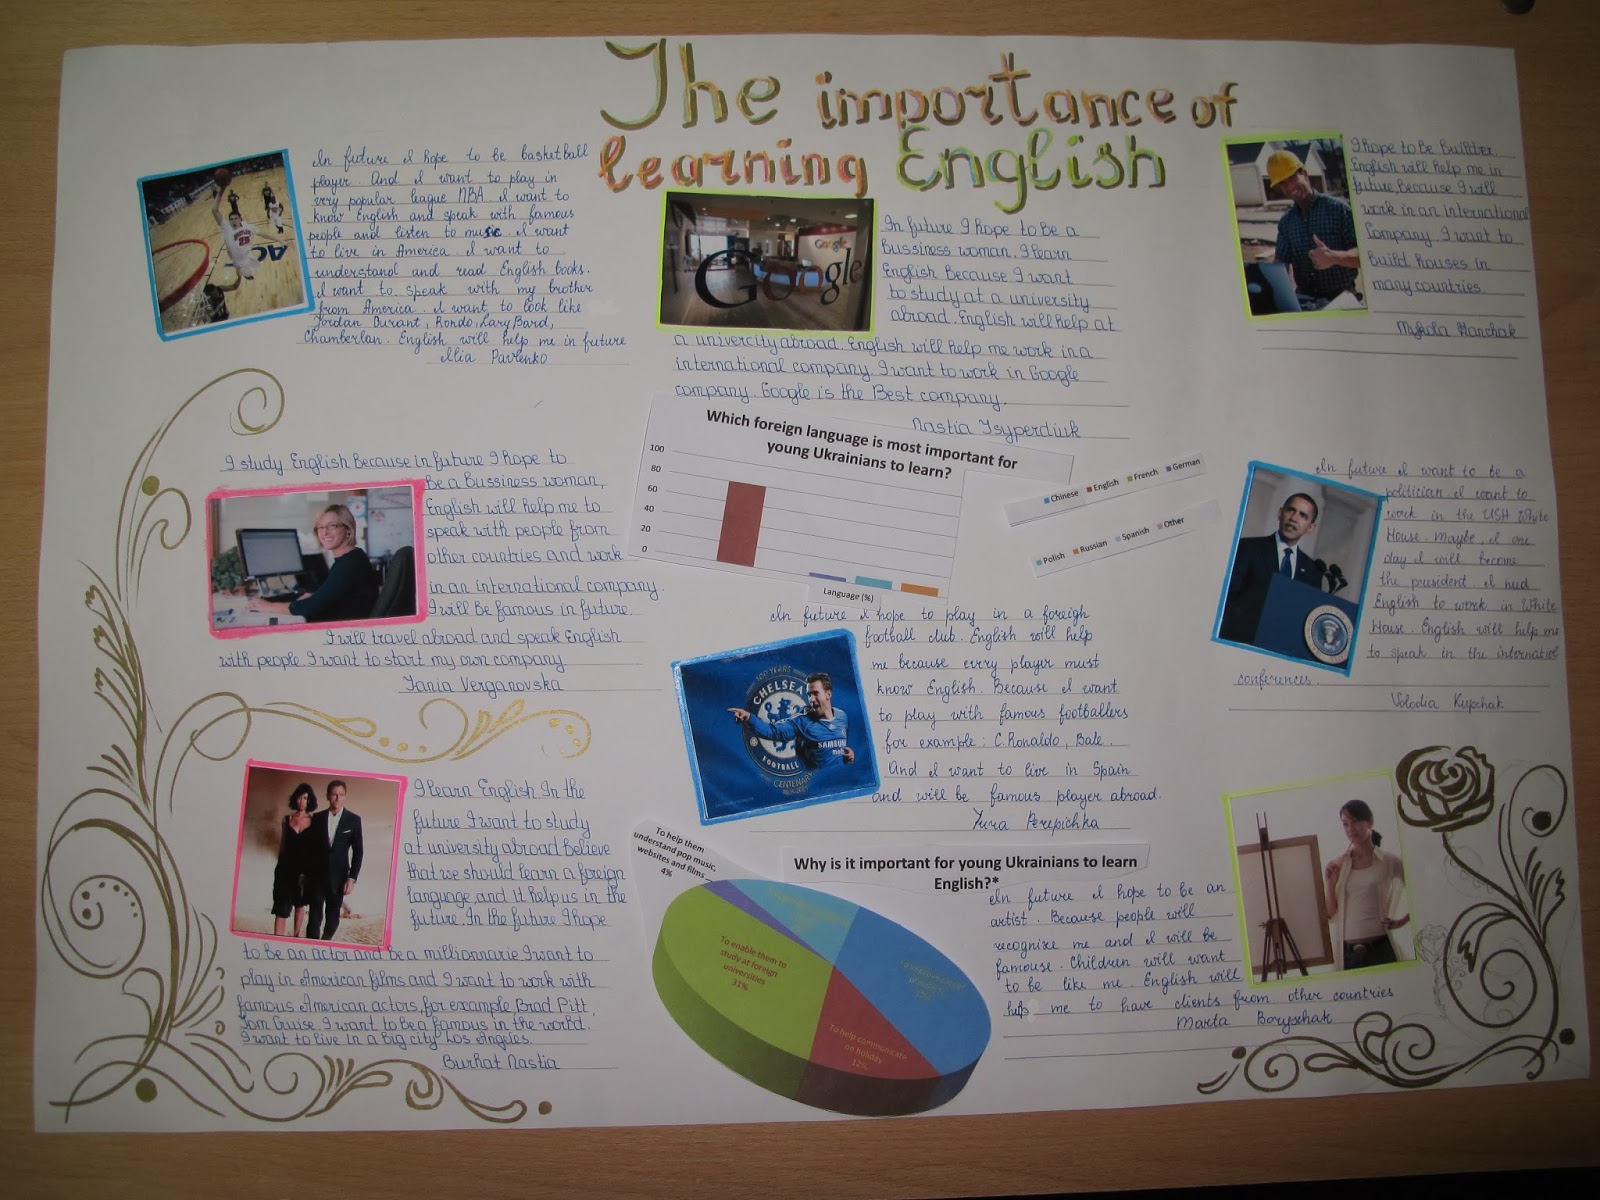 The importance of
learning English
In future I hope to be basketball
player. And I want to play in
very popular league NBA. I want to
know English and speak with famous
people and listen to music. I want
to live in America. I want to
understand and read English books.
I want to speak with my brother
from America. I want to look like
Jordan Durant, Rondo, Lary Bard,
Chamberlan. English will help me in future
Illia Pavlenko
Google
Google
In future I hope to be a
Bussiness woman. I learn
English Because I want
to study at a university
abroad. English will help at
a univercity abroad. English will help me work in a
international company. I want to work in Google
company. Google is the Best company.
Nastia Tsyperdiuk
I hope to be Builtber.
English will help me in
future, Because I will
work in an international
Company. I want to
Build houses in
many countries.
Mykola Hanchak
I study English Because in future I hope to
Be a Bussiness woman,
English will help me to
speak with people from
other countries and work
in an international company.
I will Be famous in future.
I will travel abroad and speak English
with people. I want to start my own company
Tania Verganovska
Which foreign language is most important for
young Ukrainians to learn?
100
80
60
40
20
0
Language (%)
Chinese English French German
Polish Russian Spanish Other
In future I want to be a
politician. I want to
work in the USA White
House. Maybe, I one
day I will become
the president. I need
English to work in White
House. English will help me
to speak in the internatiol
conferences.
Volodia Kupchak
In future I hope to play in a foreigh
football club. English will help
me because every player must
know English. Because I want
to play with famous footballers
for example: C.Ronaldo, Bale.
And I want to live in Spain
and will be famous player abroad.
Yura Perepichka
100 YEARS
CHELSEA
FOOTBALL
CENTENARY
SAMSUNG
I learn English. In the
future I want to study
at university abroad. Believe
that we should learn a foreign
language, and it help us in the
future. In the future I hope
to be an actor and be a millionnarie. I want to
play in American films and I want to work with
famous American actors, for example, Brad Pitt,
Tom Cruise. I want to be a famous in the world.
I want to live in a big city Los Angeles.
Burhat Nastia
Why is it important for young Ukrainians to learn
English?*
To help them
understand pop music,
websites and films
4%
To enable them to
study at foreign
universities
31%
To help communicate
on holiday
12%
In future I hope to be an
artist. Because people will
recognize me and I will be
famouse. Children will want
to be like me. English will
help me to have clients from other countries
Marta Boryschak